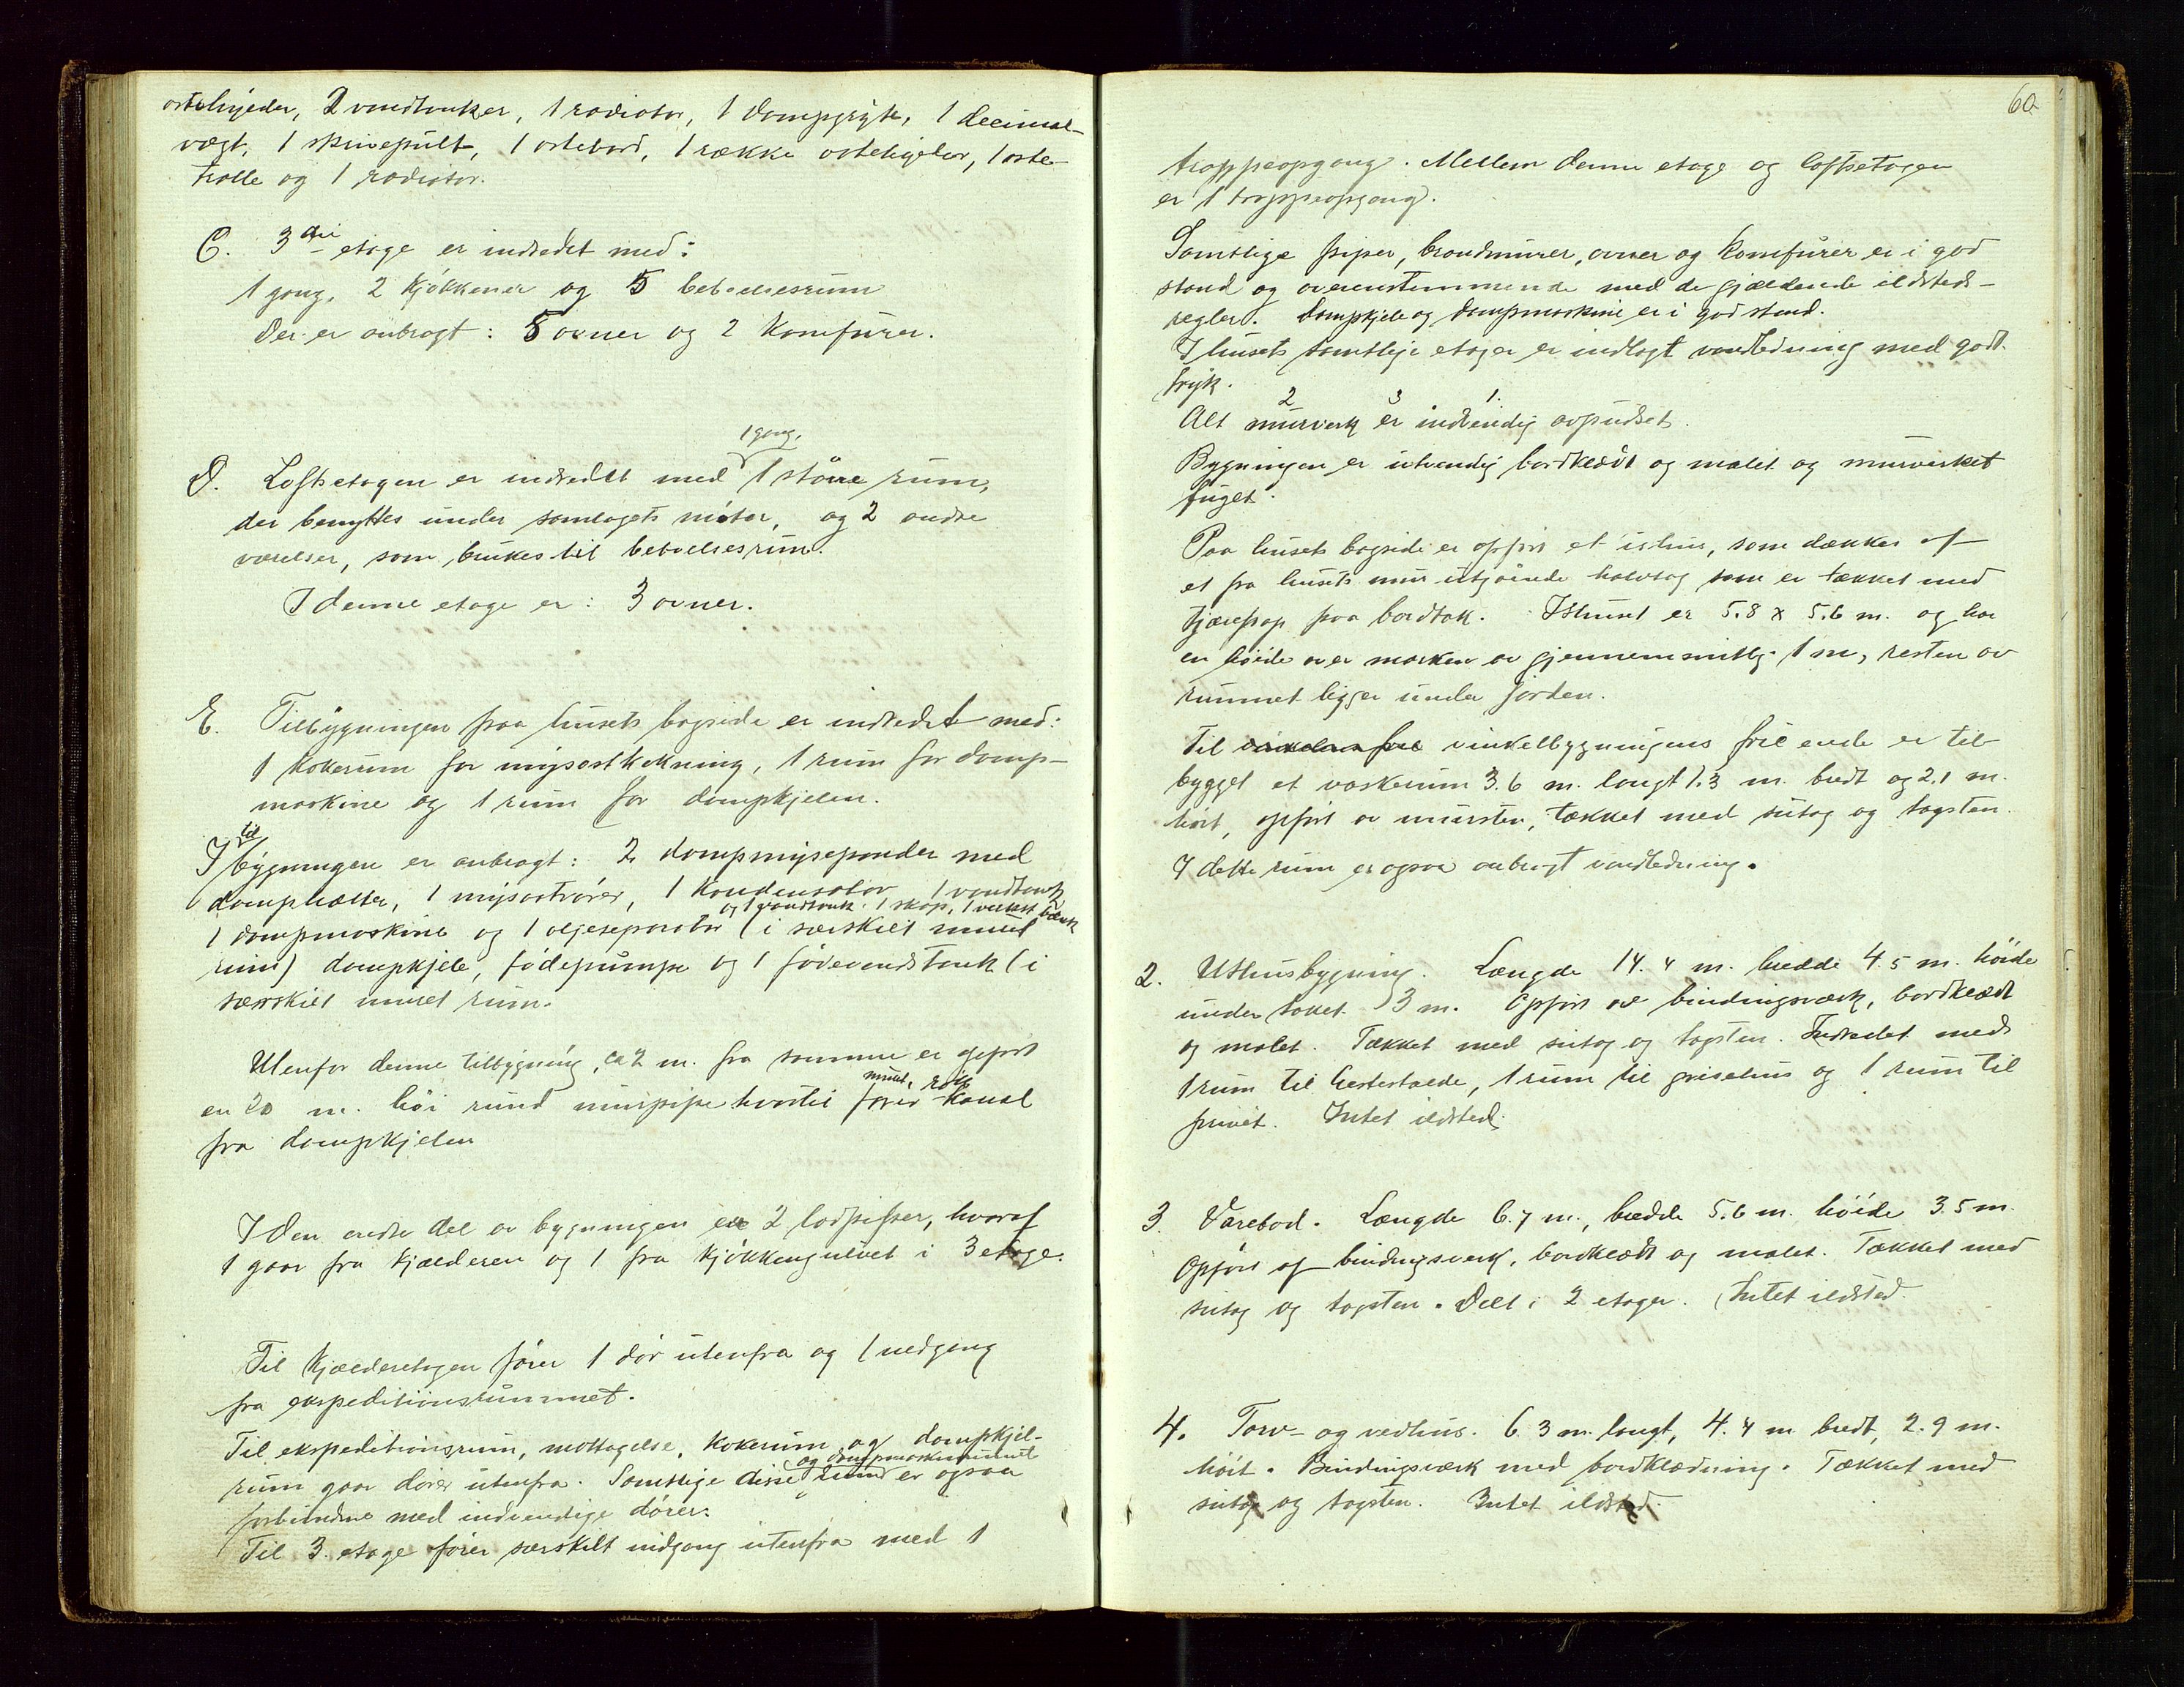 ostehyeder, 2 vandtanker, 1 radiator, 1 dampgryte, 1 decimal-
vægt, 1 skrivepult, 1 ostebord, 1 række ostehyeler, 1 oste-
tralle og 1 radiator.
C. 3die etage er indredet med:
1 gang, 2 kjøkkener og 5 beboelsesrum
Der er anbragt: 5 ovner og 2 komfurer.
1 gang,
D. Loftsetagen er indredet med 1 større rum,
der benyttes under samlagets møter, og 2 andre
værelser, som brukes til beboelsesrum.
I denne etage er: 3 ovner.
E. Tilbygningen paa husets bagside er indredet med:
1 kokerum for mysostkokning, 1 rum for damp-
maskine og 1 rum for dampkjelen.
til
I bygningen er anbragt: 2 dampmysepander med
damphætter, 1 mysostrører, 1 kondensator, 1 vandtank
og 1 vandtank. 1 skap, 1 verkst bænk
1 dampmaskine og 1 oljeseparator (i særskilt muret
rum) dampkjele, fødepumpe og 1 fødevandstank (i
særskilt muret rum.
Utenfor denne tilbygning, ca 2 m. fra samme er opført
muret, røk
en 20 m. høi rund murpipe hvortil fører kanal
fra dampkjelen
I den endre del av bygningen er 2 lodpiper, hvoraf
1 gaar fra kjælderen og 1 fra kjøkkengulvet i 3 etage.
Til kjælderetagen fører 1 dør utenfra og 1 nedgang
fra expeditionsrummet.
Til ekspeditionsrum, mottagelse, kokerum og dampkjel-
og dampmaskinrummet
rum gaar dører utenfra. Samtlige disse rum er ogsaa
forbundne med indvendige dører.
Til 3. etage fører særskilt indgang utenfra med 1
60
trappeopgang. Mellem denne etage og loftsetagen
er 1 trappeopgang.
Samtlige piper, brandmurer, ovner og komfurer er i god
stand og overenstemmende med de gjældende ildsteds-
regler. Dampkjele og dampmaskine er i god stand.
I husets samtlige etager er indlagt vandledning med godt
tryk.
2 3 1.
Alt murverk er indvendig avpudset.
Bygningen er utvendig bordklædt og malet og murverket
fuget.
Paa husets bagside er opført et ishus, som dækkes af
et fra husets mur utgaaende halvtag som er tækket med
tjærepap paa bordtak. Ishuset er 5.8 x 5.6 m. og har
en høide over marken av gjennemsnittlig 1 m, resten av
rummet ligger under jorden.
Til vinkelbygningens frie ende er til-
bygget et vaskerum 3.6 m. langt 1.3 m. bredt og 2.1 m.
høit, opført av mursten, tækket med sutag og tagsten.
I dette rum er ogsaa anbragt vandledning.
2. Uthusbygning. Længde 14.4 m. bredde 4.5 m. høide
under taket 3 m. Opført av bindingsværk, bordklædt
og malet. Tækket med sutag og tagsten. Indredet med
1 rum til hestestalde, 1 rum til grisehus og 1 rum til
privet. Intet ildsted.
3. Varebod. Længde 6.7 m., bredde 5.6 m. høide 3.5 m.
Opført af bindingsverk, bordklædt og malet. Tækket med
sutag og tagsten. Delt i 2 etager. Intet ildsted.
4. Torv- og vedhus. 6.3 m. langt, 4.4 m bredt, 2.9 m.
høit. Bindingsværk med bordklædning. Tækket med
sutag og tagsten. Intet ildsted.